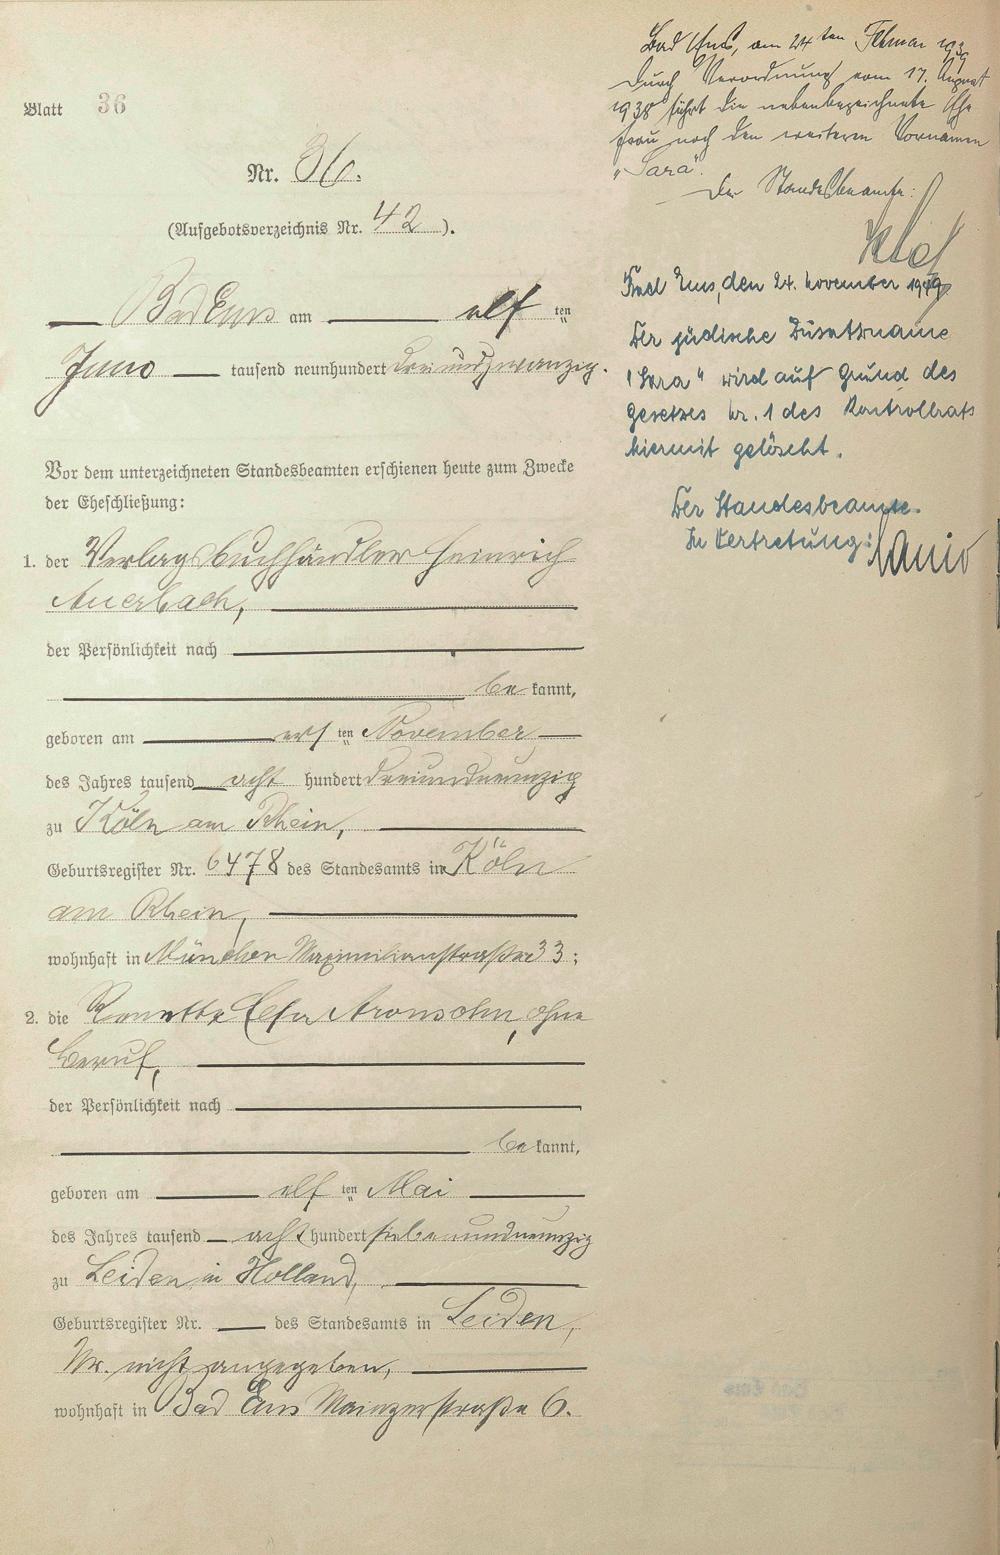 Blatt 36
Nr. 36.
(Aufgebotsverzeichnis Nr. 42).
Bad Ems am elf ten
Juno tausend neunhundert dreiundzwanzig.
Vor dem unterzeichneten Standesbeamten erschienen heute zum Zwecke
der Eheschließung:
1. der Verlagsbuchhändler Heinrich
Auerbach,
der Persönlichkeit nach
be kannt,
geboren am ten November
des Jahres tausend acht hundert dreiundneunzig
zu Köln am Rhein,
Geburtsregister Nr. 6478 des Standesamts in Köln
am Rhein,
wohnhaft in München Maximilianstraße 33;
2. die Aronsohn, ohne
Beruf,
der Persönlichkeit nach
be kannt,
geboren am elf ten Mai
des Jahres tausend acht hundert siebenundneunzig
zu Leiden in Holland,
Geburtsregister Nr. des Standesamts in Leiden,
Nr. nicht angegeben,
wohnhaft in Bad Ems Mainzerstraße 6.
Bad Ems, am 24ten Februar 1939
Durch Verordnung vom 17. August
1938 führt die nebenbezeichnete Ehe
frau noch den weiteren Vornamen
„Sara".
Der Standesbeamte:
Bad Ems, den 24. November 1949
Der jüdische Zusatzname
"Sara" wird auf Grund des
Gesetzes Nr. 1 des Kontrollrats
hiermit gelöscht.
Der Standesbeamte.
In Vertretung:
Bad Ems